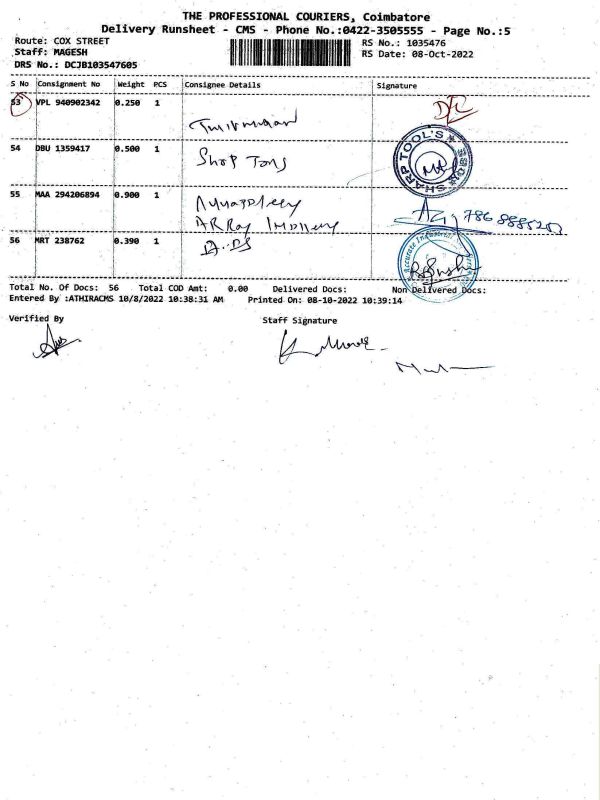 THE PROFESSIONAL COURIERS, Coimbatore
Delivery Runsheet - CMS - Phone No.:0422-3505555 - Page No.:5
Route: COX STREET
RS No.: 1035476
Staff: MAGESH
RS Date: 08-Oct-2022
DRS No.: DCJB103547605
S No Consignment No Weight PCS Consignee Details Signature
53 VPL 940902342 0.250 1
54 DBU 1359417 0.500 1 Shop Tons
SHARP TOOL'S
55 MAA 294206894 0.900 1
56 MRT 238762 0.390 1
Total No. Of Docs: 56 Total COD Amt: 0.00 Delivered Docs: Non Delivered Docs:
Entered By :ATHIRACMS 10/8/2022 10:38:31 AM Printed On: 08-10-2022 10:39:14
Verified By Staff Signature